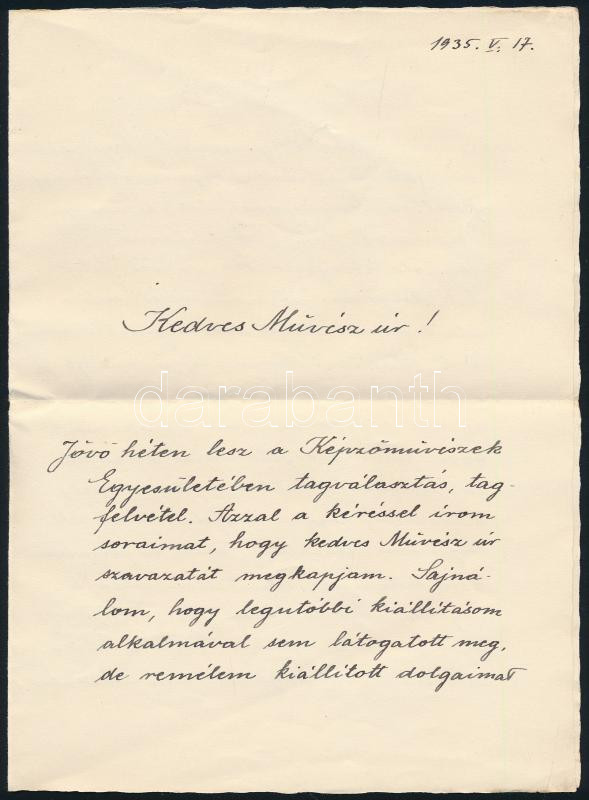 1935. V. 17.
Kedves Művész úr!
darabanth
Jövő héten lesz a Képzőművészek
Egyesületében tagválasztás, tag-
felvétel. Azzal a kéréssel írom
soraimat, hogy kedves Művész úr
szavazatát megkapjam. Sajná-
lom, hogy legutóbbi kiállításom
alkalmával sem látogatott meg,
de remélem kiállított dolgaimat